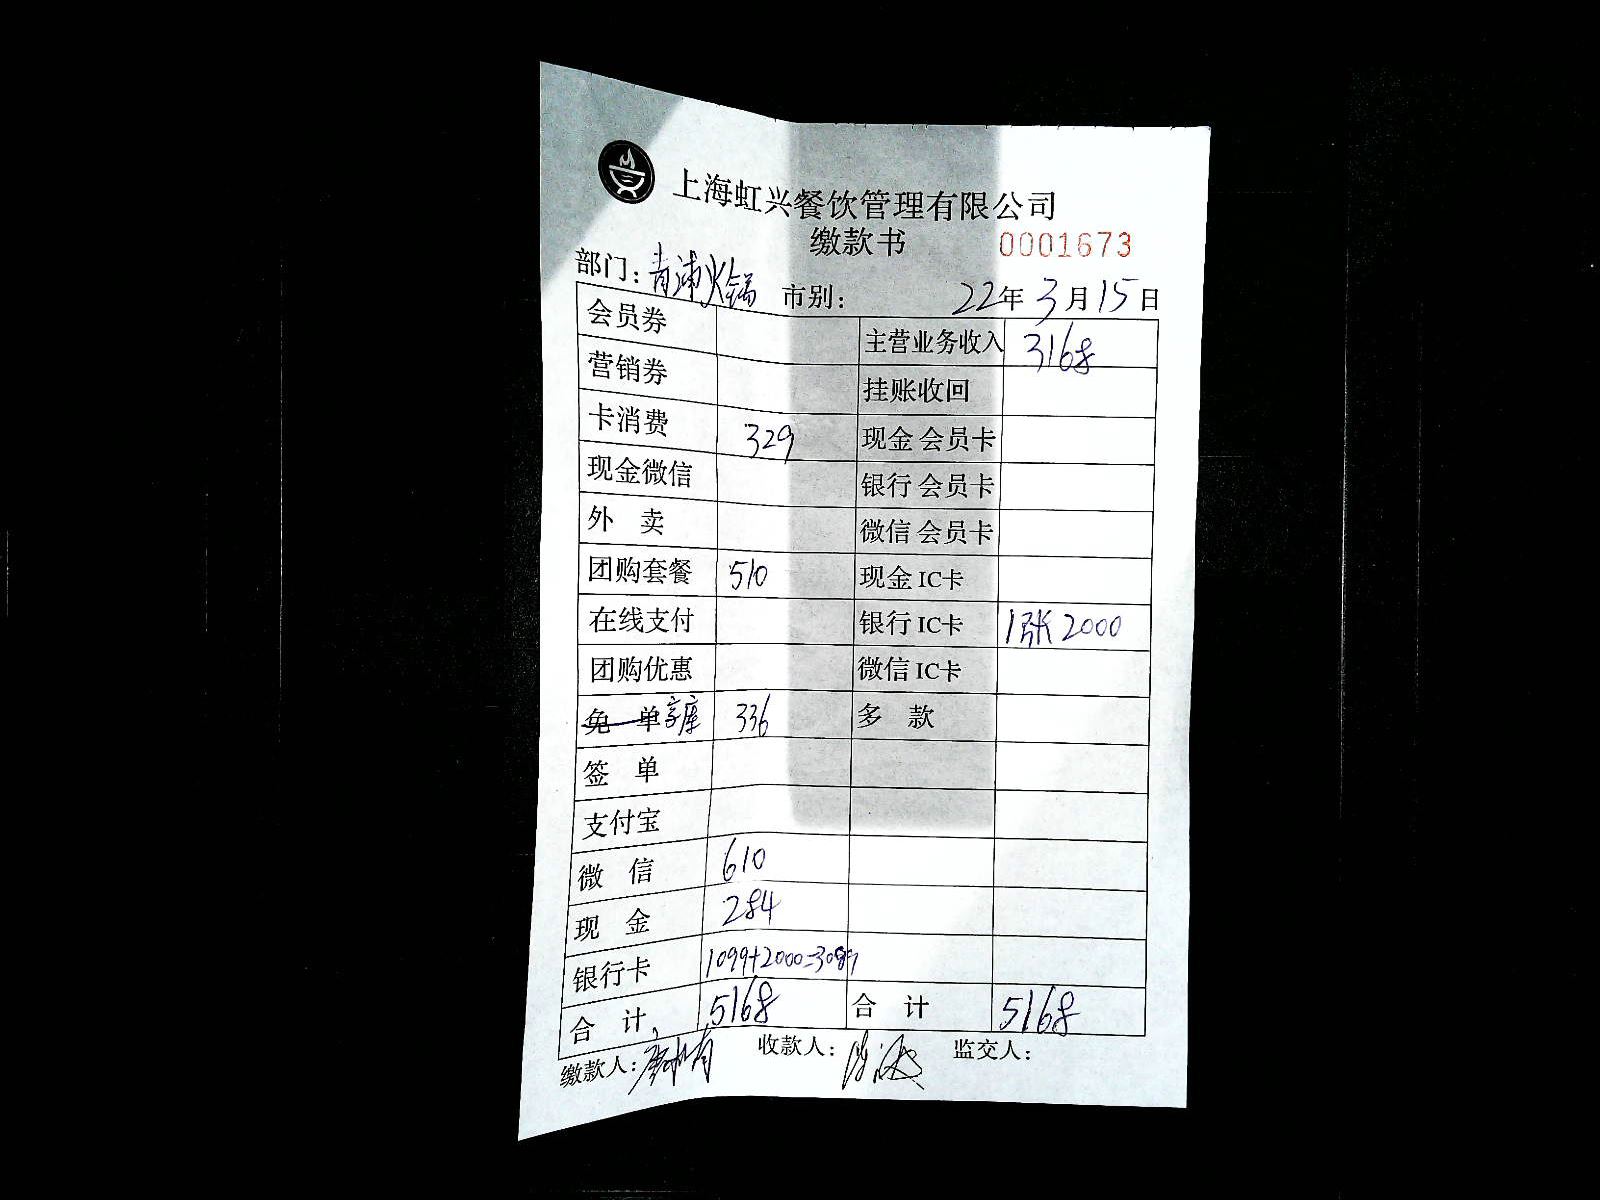 上海虹兴餐饮管理有限公司
缴款书 0001673
部门：青浦火锅 市别： 22年3月15日
会员券 主营业务收入 3168
营销券 挂账收回
卡消费 329 现金会员卡
现金微信 银行会员卡
外卖 微信会员卡
团购套餐 510 现金IC卡
在线支付 银行IC卡 1张2000
团购优惠 微信IC卡
免单 336 多款
签单
支付宝
微信 610
现金 284
银行卡 1099+2000=3099
合计 5168 合计 5168
缴款人： 收款人： 监交人：